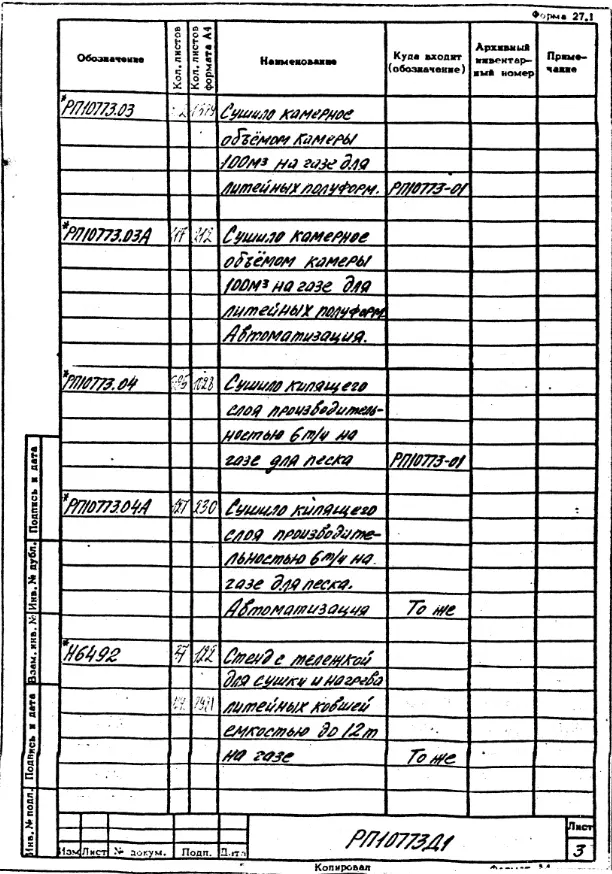 Форма 27.1
Обозначение Кол. листов Кол. листов формата А4 Наименование Куда входит (обозначение) Архивный инвентарный номер Примечание
*РП10773.03 Сушило камерное
объёмом камеры
100м³ на газе для
литейных полуформ. РП10773-01
*РП10773.03А 212 Сушило камерное
объёмом камеры
100м³ на газе для
литейных полуформ
Автоматизация.
*РП10773.04 1028 Сушило кипящего
слоя производитель-
ностью 6т/ч на
газе для песка РП10773-01
*РП10773.04А 230 Сушило кипящего
слоя производите-
льностью 6т/ч на
газе для песка.
Автоматизация То же
*Н6492 Стенд с тележкой
для сушки и нагрева
литейных ковшей
емкостью до 12т
на газе То же
Инв. № подл. Подпись и дата Взам. инв. № Инв. № дубл. Подпись и дата
Изм Лист № докум. Подп. Дата
РП10773Д1
Лист
3
Копировал